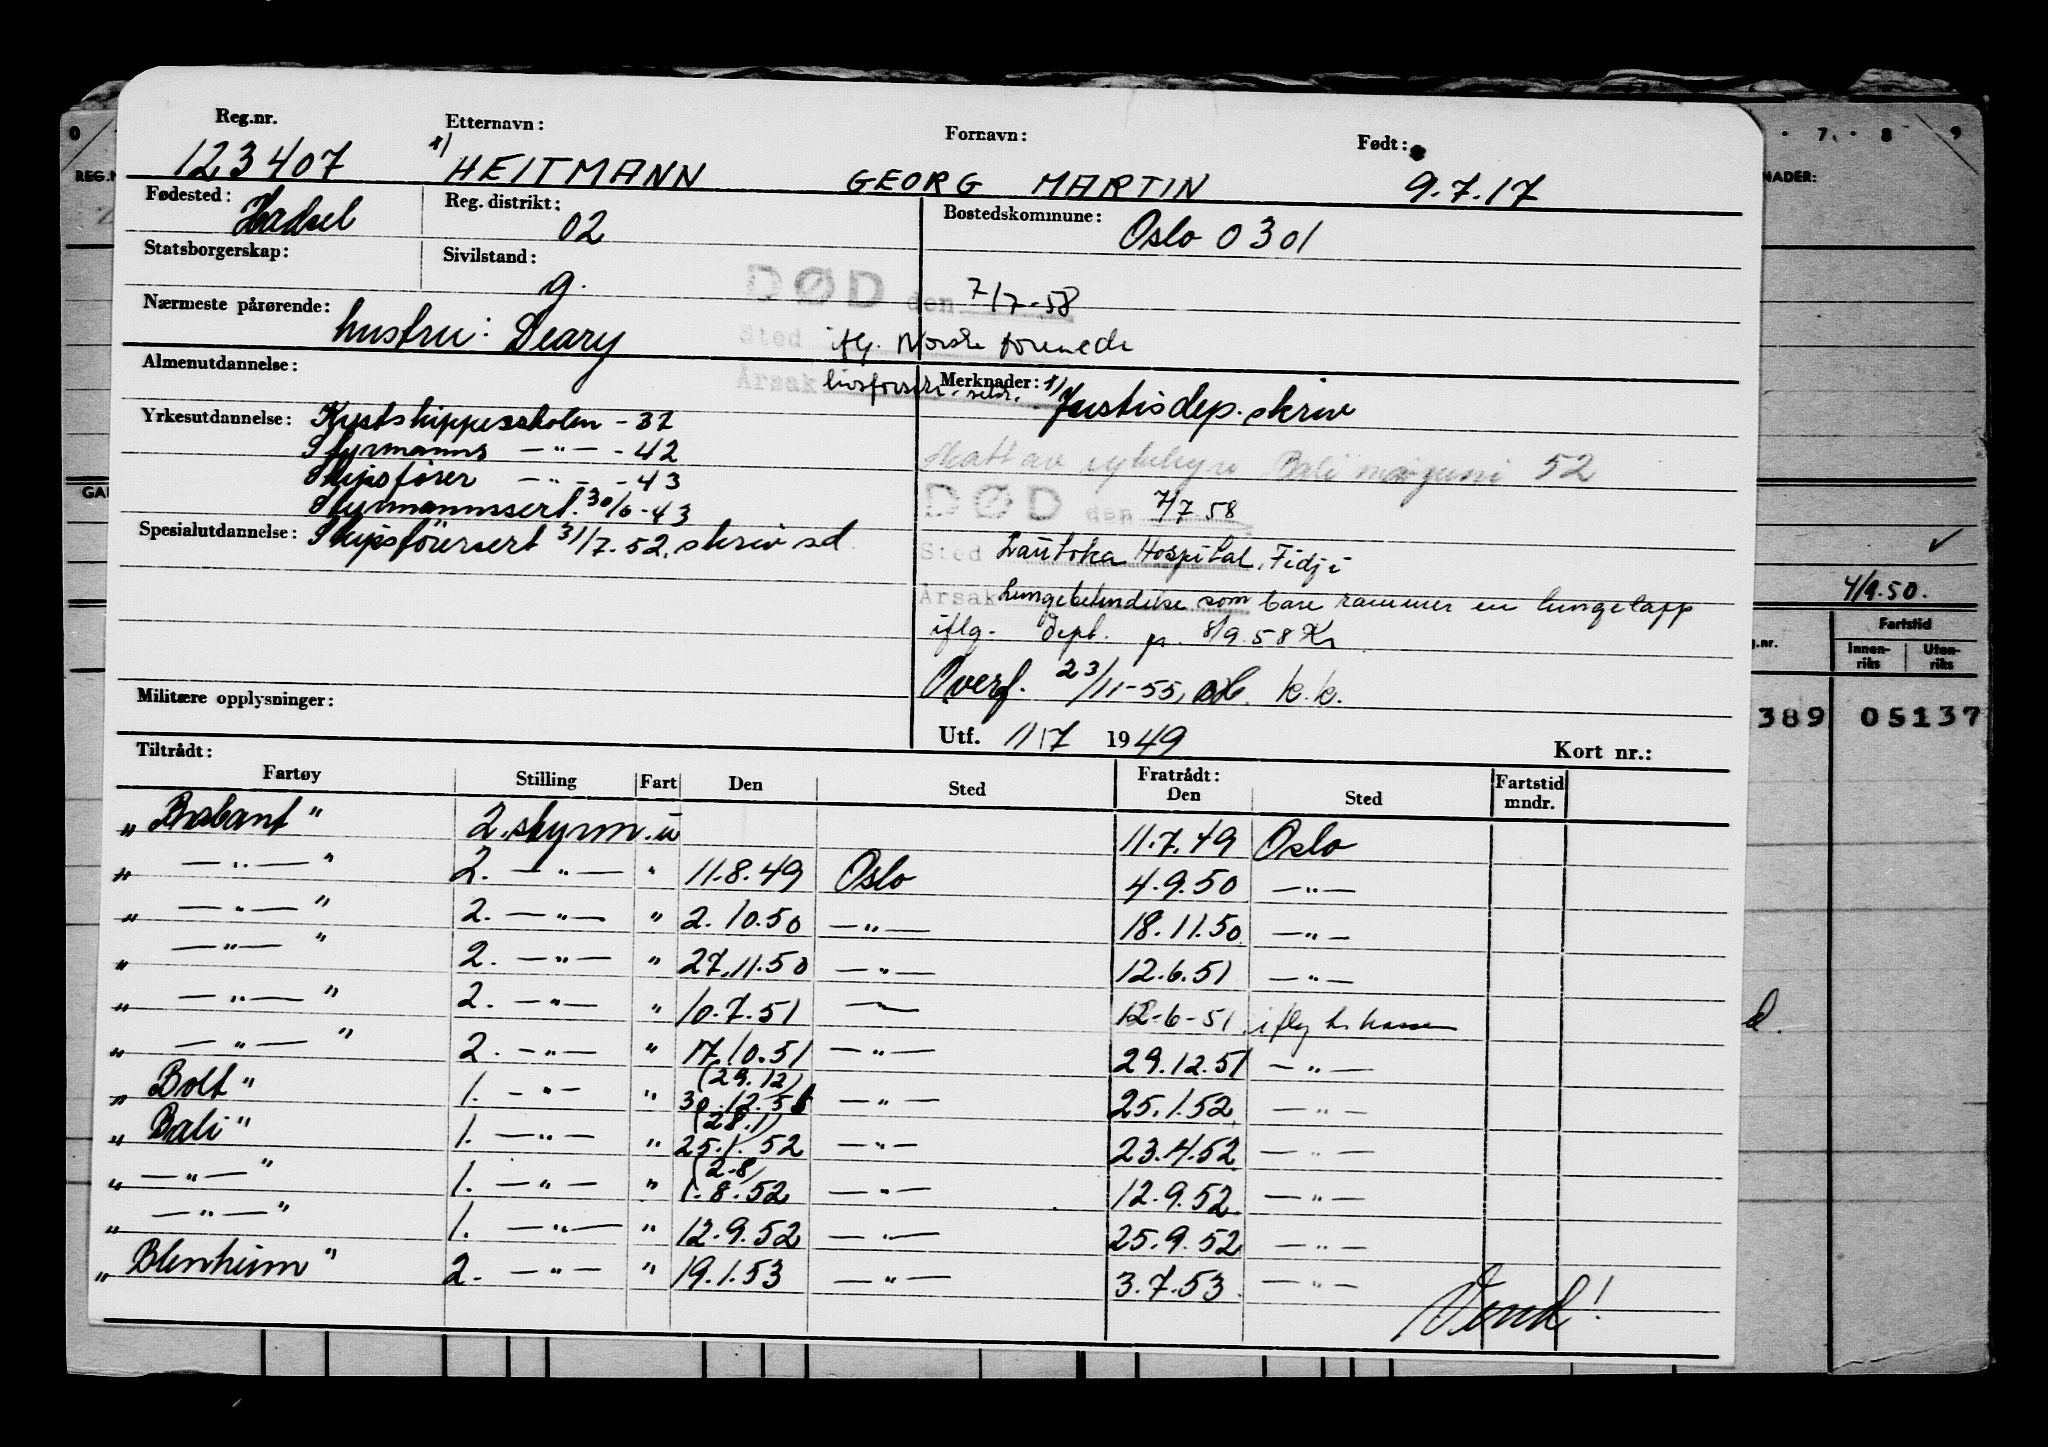 Reg.nr. Etternavn: Fornavn: Født:
123407 x/ HEITMANN GEORG MARTIN 9.7.17
Fødested: Hadsel Reg. distrikt: 02 Bostedskommune: Oslo 0301
Statsborgerskap: Sivilstand: g.
DØD den 7/7-58
Nærmeste pårørende: hustru: Deary
Sted iflg. Norske forenede
Årsak livsforsikr. selsk.
Almenutdannelse:
Merknader: x/ Justisdep. skriv
Yrkesutdannelse: Kystskippersskolen - 37
Styrmanns — " — - 42
Skipsfører — " — - 43
Styrmannssert. 30/6-43
Spesialutdannelse: Skipsførersert 31/7.52, skriv sd
Skatt av Bali 52
DØD den 7/7 58
Sted Lautoka Hospital, Fidji
Årsak Lungebetendelse som bare rammer en lungelapp
iflg. dept. 8/9.58 Kr
Overf. 23/11-55, k.k.
Militære opplysninger:
Utf. 11/7 1949 Kort nr.:
Tiltrådt: Fratrådt:
Fartøy Stilling Fart Den Sted Den Sted Fartstid mndr.
" Brabant " 2. styrm. u 11.7.49 Oslo
" — " — " 2. — " — " 11.8.49 Oslo 4.9.50 — " —
" — " — " 2. — " — " 2.10.50 — " — 18.11.50 — " —
" — " — " 2. — " — " 27.11.50 — " — 12.6.51 — " —
" — " — " 2. — " — " 10.7.51 — " — 12-6-51 iflg
" — " — " 2. — " — " 17.10.51 — " — 29.12.51 — " —
(29.12)
" Bolt " 1. — " — " 30.12.51 — " — 25.1.52 — " —
(28.1)
" Bali " 1. — " — " 25.1.52 — " — 23.4.52 — " —
(2-8)
" — " — " 1. — " — " 1.8.52 — " — 12.9.52 — " —
" — " — " 1. — " — " 12.9.52 — " — 25.9.52 — " —
" Blenheim " 2. — " — " 19.1.53 — " — 3.7.53 — " —
Vend!
0
7 . 8 9
REG.N
NADER:
GA
4/9.50.
Fartstid
g.nr. Innen-riks Uten-riks
389 05137
d.